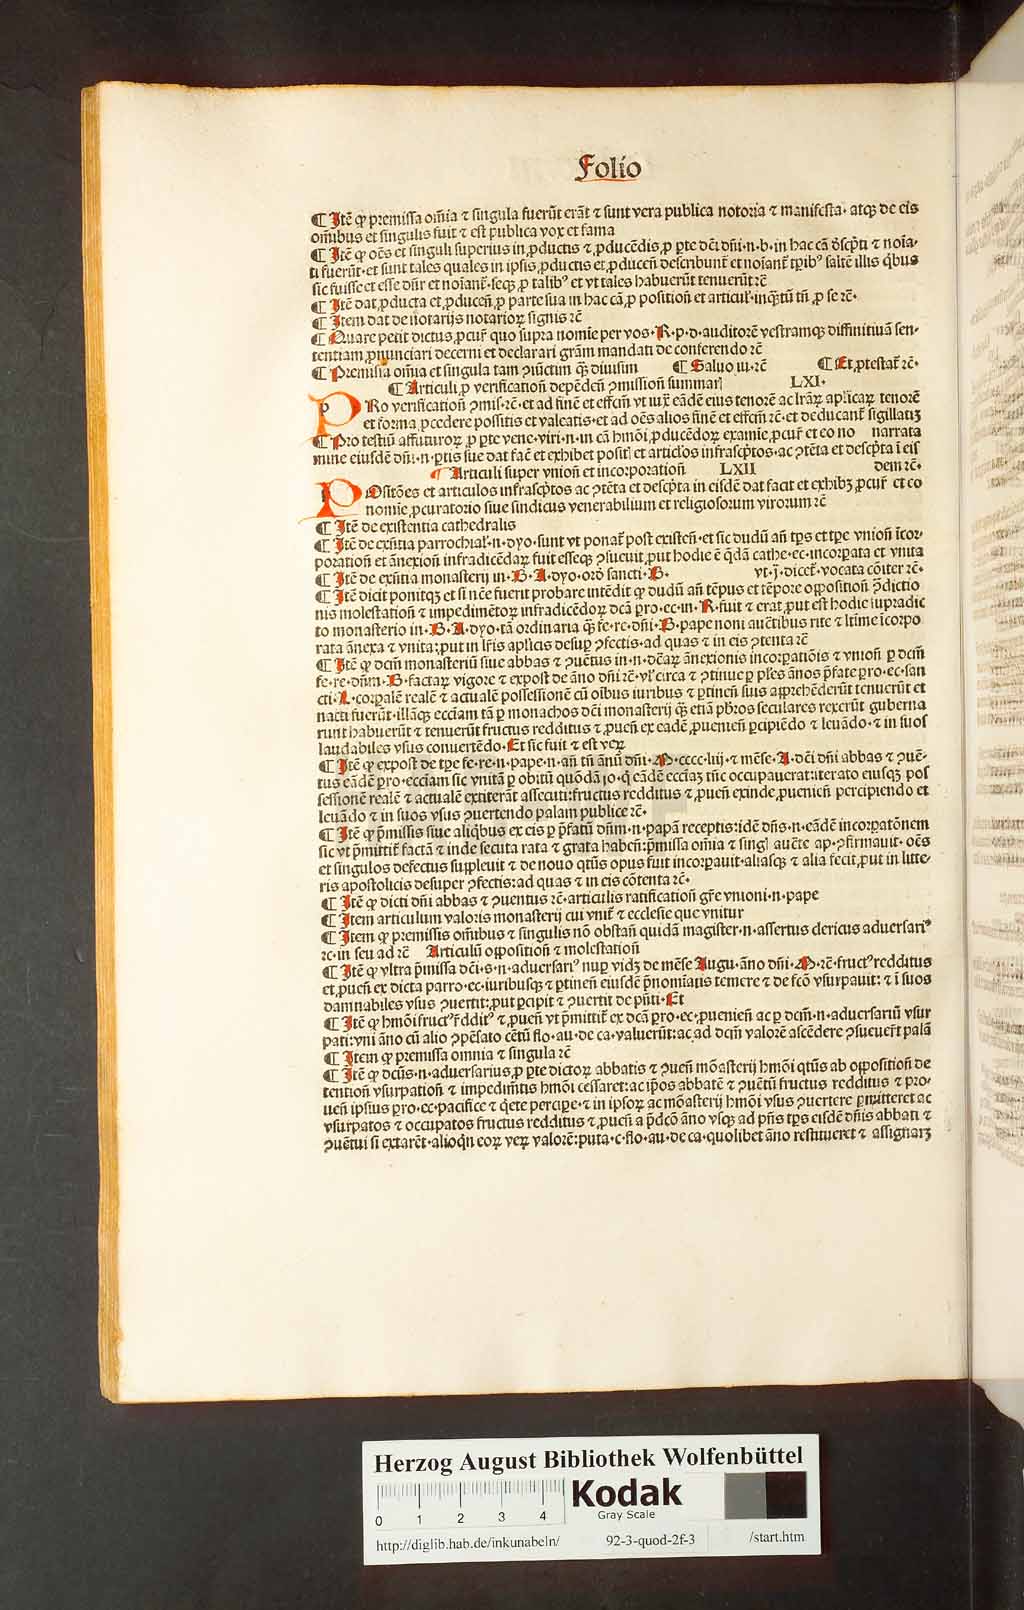 Folio
¶ Itē ꝙ premissa om̄ia ⁊ singula fuerūt erāt ⁊ sunt vera publica notoria ⁊ manifesta· atqꝫ de eis
om̄ibus et singulis fuit ⁊ est publica vox et fama
¶ Itē ꝙ oēs et singuli superius in ꝓductis ⁊ ꝓducēdis ꝓ ꝑte dc̄i dn̄i·n·b·in hac cā
ti fuerūt·et sunt tales quales in ipsis ꝓductis et ꝓducen̄ describunt̄ et noiant̄ saltē illis
sic fuisse et esse et noiant̄· ꝓ talibꝰ et vt tales habuerūt tenuerūt ⁊c̄
¶ Itē dat ꝓducta et ꝓducen̄ ꝓ parte sua in hac cā ꝓ position̄ et articul̓ ꝓ se ⁊c̄·
¶ Item dat de notarijs notarioꝝ signis ⁊c̄
¶ Quare petit dictus ꝓcur̄ quo supra nomīe per vos·R·p·d·auditorē vestramqꝫ diffinitiuā sen-
tentiam ꝓnunciari decerni et declarari grām mandati de conferendo ⁊c̄
¶ Premissa om̄ia et singula tam ꝯiūctim qꝫ diuisim ¶ Saluo iu·⁊c̄ ¶ Et ꝓtestat̄ ⁊c̄·
¶ Articuli ꝓ verification̄ depēden̄ ꝯmission̄ summar̄ LXI·
PRo verification̄ ꝯmis·⁊c̄·et ad finē et effcm̄ vt iux̄ eādē eius tenorē ac lr̄aꝝ aplicaꝝ tenorē
et forma ꝓcedere possitis et valeatis·et ad oēs alios finē et effcm̄ ⁊c̄·et deducant̄ sigillatiꝫ
¶ Pro testiū affuturoꝝ ꝓ ꝑte vene·viri·n·in cā hmōi ꝓducēdoꝝ examīe ꝓcur̄ et eo no narrata
mine eiusdē dn̄i·n·ꝑtis sue dat fac̄ et exhibet posit̄ et articlos infrascp̄tos·ac ꝯtēta et descp̄ta ī eis
¶ Articuli super vnion̄ et incorporation̄ LXII dem ⁊c̄·
POsitōes et articulos infrascp̄tos ac ꝯtēta et descp̄ta in eisdē dat facit et exhibꝫ ꝓcur̄ et eo
nomīe ꝓcuratorio siue sindicus venerabilium et religiosorum virorum ⁊c̄
¶ Itē de existentia cathedralis
¶ Itē de exn̄tia parrochial̓·n·dyo·sunt vt ponat̄ post existen̄·et sic dudū an̄ tp̄s et tꝑe vnion̄ īcor-
poration̄ et ānexion̄ infradicēdaꝝ fuit esseqꝫ ꝯsueuit ꝓut hodie ē q̄dā cathe·ec·incorꝑata et vnita
¶ Itē de exn̄tia monasterij in·B·A·dyo·ord̄ sancti·B· vt·j·dicet̄·vocata cōiter ⁊c̄·
¶ Itē dicit ponitqꝫ et si nc̄e fuerit probare intēdit ꝙ dudū an̄ tēpus et tēpore opposition̄ ꝑdictio
nis molestation̄ ⁊ impedimētoꝝ infradicēdoꝝ dc̄ā ꝑro·ec·in·R·fuit ⁊ erat ꝓut est hodie iupradic
to monasterio in·B·A·dyo·tā ordinaria qꝫ fe·re·dn̄i·B·pape noni auctibus rite ⁊ ltīme īcorpo
rata ānexa ⁊ vnita:ꝓut in lr̄is aplicis desuꝑ ꝯfectis·ad quas ⁊ in eis ꝯtenta ⁊c̄
¶ Itē ꝙ dcm̄ monasteriū siue abbas ⁊ ꝯuētus in·n·dc̄aꝝ ānexionis incorꝑatiōis ⁊ vnion̄ ꝑ dcm̄
fe·re·dn̄m·B·factaꝝ vigore ⁊ expost de āno dn̄i ⁊c̄·vl̓ circa ⁊ ꝯtinue ꝑ pl̓es ānos p̄fate ꝑro·ec·san
cti·L·corꝑalē realē ⁊ actualē possessionē cū oībus iuribus ⁊ ꝑtinen̄ suis apprehēderūt tenuerūt et
nacti fuerūt·illāqꝫ ecciam tā ꝑ monachos dc̄i monasterij qꝫ etiā pb̄ros seculares rexerūt guberna
runt habuerūt ⁊ tenuerūt fructus redditus ⁊ ꝓuen̄ ex eadē ꝓuenien̄ ꝑcipiēdo ⁊ leuādo·⁊ in suos
laudabiles vsus conuertēdo·Et sic fuit ⁊ est veꝝ
¶ Itē ꝙ expost de tꝑe fe·re·n·pape·n·an̄ tn̄ ānū dn̄i·M·cccc·liij·⁊ mēse·A·dc̄i dn̄i abbas ⁊ ꝯuē-
tus eādē ꝑro·ecciam sic vnitā ꝑ obitū quōdā jo·q̄ eādē ecciaꝫ tūc occupauerat:iterato eiusqꝫ pos
sessionē realē ⁊ actualē extiterāt assecuti:fructus redditus ⁊ ꝓuen̄ exinde ꝓuenien̄ percipiendo et
leuādo ⁊ in suos vsus ꝯuertendo palam publice ⁊c̄·
¶ Itē ꝙ p̄missis siue aliqbus ex eis ꝑ p̄fatū dn̄m·n·papā receptis:idē dn̄s·n·eādē incorꝑatōnem
sic vt p̄mittit̄ factā ⁊ inde secuta rata ⁊ grata haben̄:p̄missa om̄ia ⁊ singl̓ aucte ap·ꝯfirmauit·oēs
et singulos defectus suppleuit ⁊ de nouo qtūs opus fuit incorꝑauit·aliasqꝫ ⁊ alia fecit ꝓut in litte-
ris apostolicis desuper ꝯfectis:ad quas ⁊ in eis cōtenta ⁊c̄·
¶ Itē ꝙ dicti dn̄i abbas ⁊ ꝯuentus ⁊c̄·articulis ratification̄ gr̄e vnioni·n·pape
¶ Item articulum valoris monasterij cui vnit̄ ⁊ ecclesie que vnitur
¶ Item ꝙ premissis om̄ibus ⁊ singulis nō obstan̄ quidā magister·n·assertus clericus aduersariꝰ
⁊c·in seu ad ⁊c̄ Articulū opposition̄ ⁊ molestation̄
¶ Itē ꝙ vltra p̄missa dc̄i·s·n·aduersariꝰ nuꝑ vidꝫ de mēse Augu·āno dn̄i·M·⁊c̄·fructꝰ redditus
et ꝓuen̄ ex dicta parro·ec·iuribusqꝫ ⁊ ꝑtinen̄ eiusdē p̄nomīatis temere ⁊ de fcō vsurpauit: ⁊ ī suos
damnabiles vsus ꝯuertit:ꝓut ꝑcipit ⁊ ꝯuertit de pn̄ti·Et
¶ Itē ꝙ hmōi fructꝰ r̄dditꝰ ⁊ ꝓuen̄ vt p̄mittit̄ ex dc̄ā ꝑro·ec·ꝓuenien̄ ac ꝑ dcm̄·n·aduersariū vsur
pati:vni āno cū alio ꝯpēsato cētū flo·au·de ca·valuerūt:ac ad dcm̄ valorē ascēdere ꝯsueuer̄t palā
¶ Item ꝙ premissa omnia ⁊ singula ⁊c̄
¶ Itē ꝙ dcūs·n·aduersarius ꝓ ꝑte dictoꝝ abbatis ⁊ ꝯuen̄ mōasterij hmōi qtūs ab opposition̄ de
tention̄ vsurpation̄ ⁊ impedim̄tis hmōi cessaret:ac ip̄os abbatē ⁊ ꝯuētū fructus redditus ⁊ pro-
uen̄ ipsius ꝑro·ec·pacifice ⁊ q̄ete percipe·⁊ in ipsoꝝ ac mōasterij hmōi vsus ꝯuertere ꝑmitteret ac
vsurpatos ⁊ occupatos fructus redditus ⁊ ꝓuen̄ a p̄dcō āno vsqꝫ ad pn̄s tp̄s eisdē dn̄is abbati ⁊
ꝯuētui si extarēt·alioqn̄ eoꝝ veꝝ valorē:puta·c·flo·au·de ca·quolibet āno restitueret ⁊ assignarꝫ
Herzog August Bibliothek Wolfenbüttel
0 1 2 3 4
Kodak
Gray Scale
http://diglib.hab.de/inkunabeln/ 92-3-quod-2f-3 /start.htm